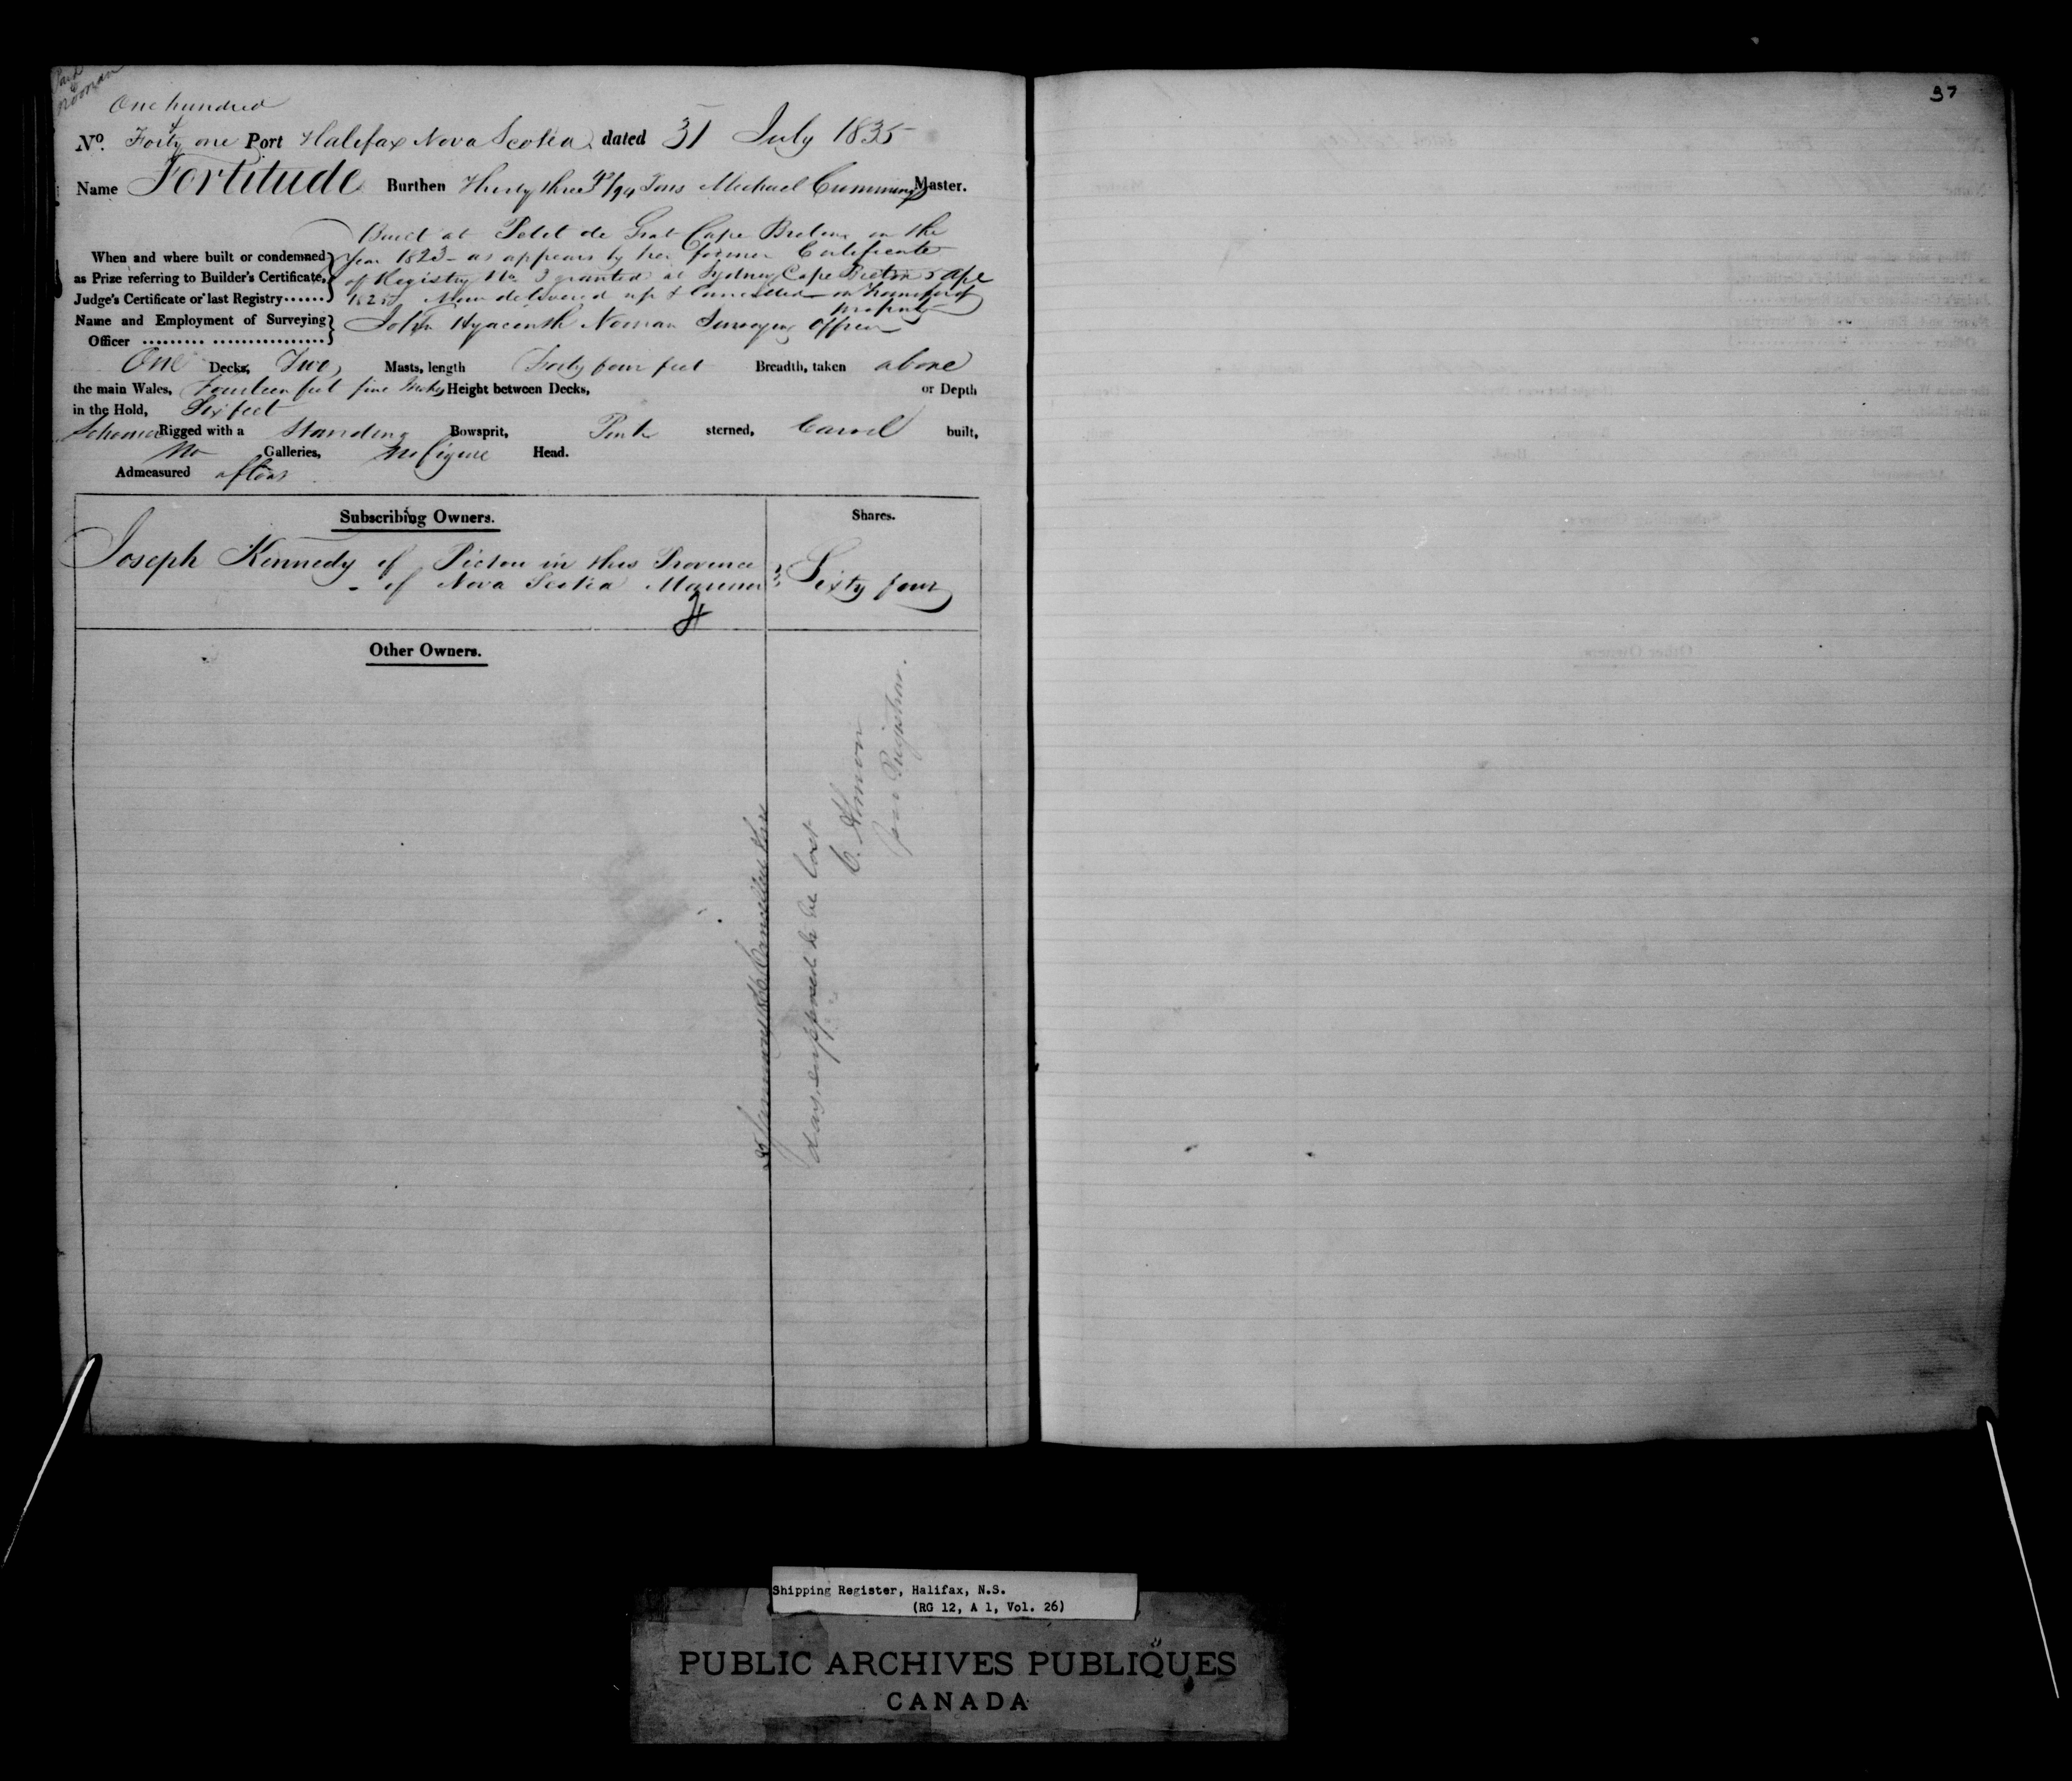 Paid
Noonan
One hundred
No. Forty one Port Halifax Nova Scotia dated 31 July 1835
Name Fortitude Burthen Thirty three /94 Tons Michael Cummings Master.
Built at Petit de Grat Cape Breton in the
When and where built or condemned year 1823 as appears by her former Certificate
as Prize referring to Builder's Certificate, of Registry No. 3 granted at Sydney Cape Breton 5 Apl
Judge's Certificate or last Registry...... 1825 Now delivered up & Cancelled on transfer of
property
Name and Employment of Surveying John Hyacinth Noonan Surveying Officer
Officer ......... ................
One Decks, Two Masts, length Forty four feet Breadth, taken above
the main Wales, Fourteen feet five Inches Height between Decks, or Depth
in the Hold, Six feet
Schooner Rigged with a Standing Bowsprit, Pink sterned, Carvel built,
No Galleries, No figure Head.
Admeasured afloat
Subscribing Owners. Shares.
Joseph Kennedy of Pictou in this Province
of Nova Scotia Mariner Sixty four
Other Owners.
January Cancelled this
day supposed to be lost
C.
Registrar.
37
Shipping Register, Halifax, N.S.
(RG 12, A 1, Vol. 26)
PUBLIC ARCHIVES PUBLIQUES
CANADA